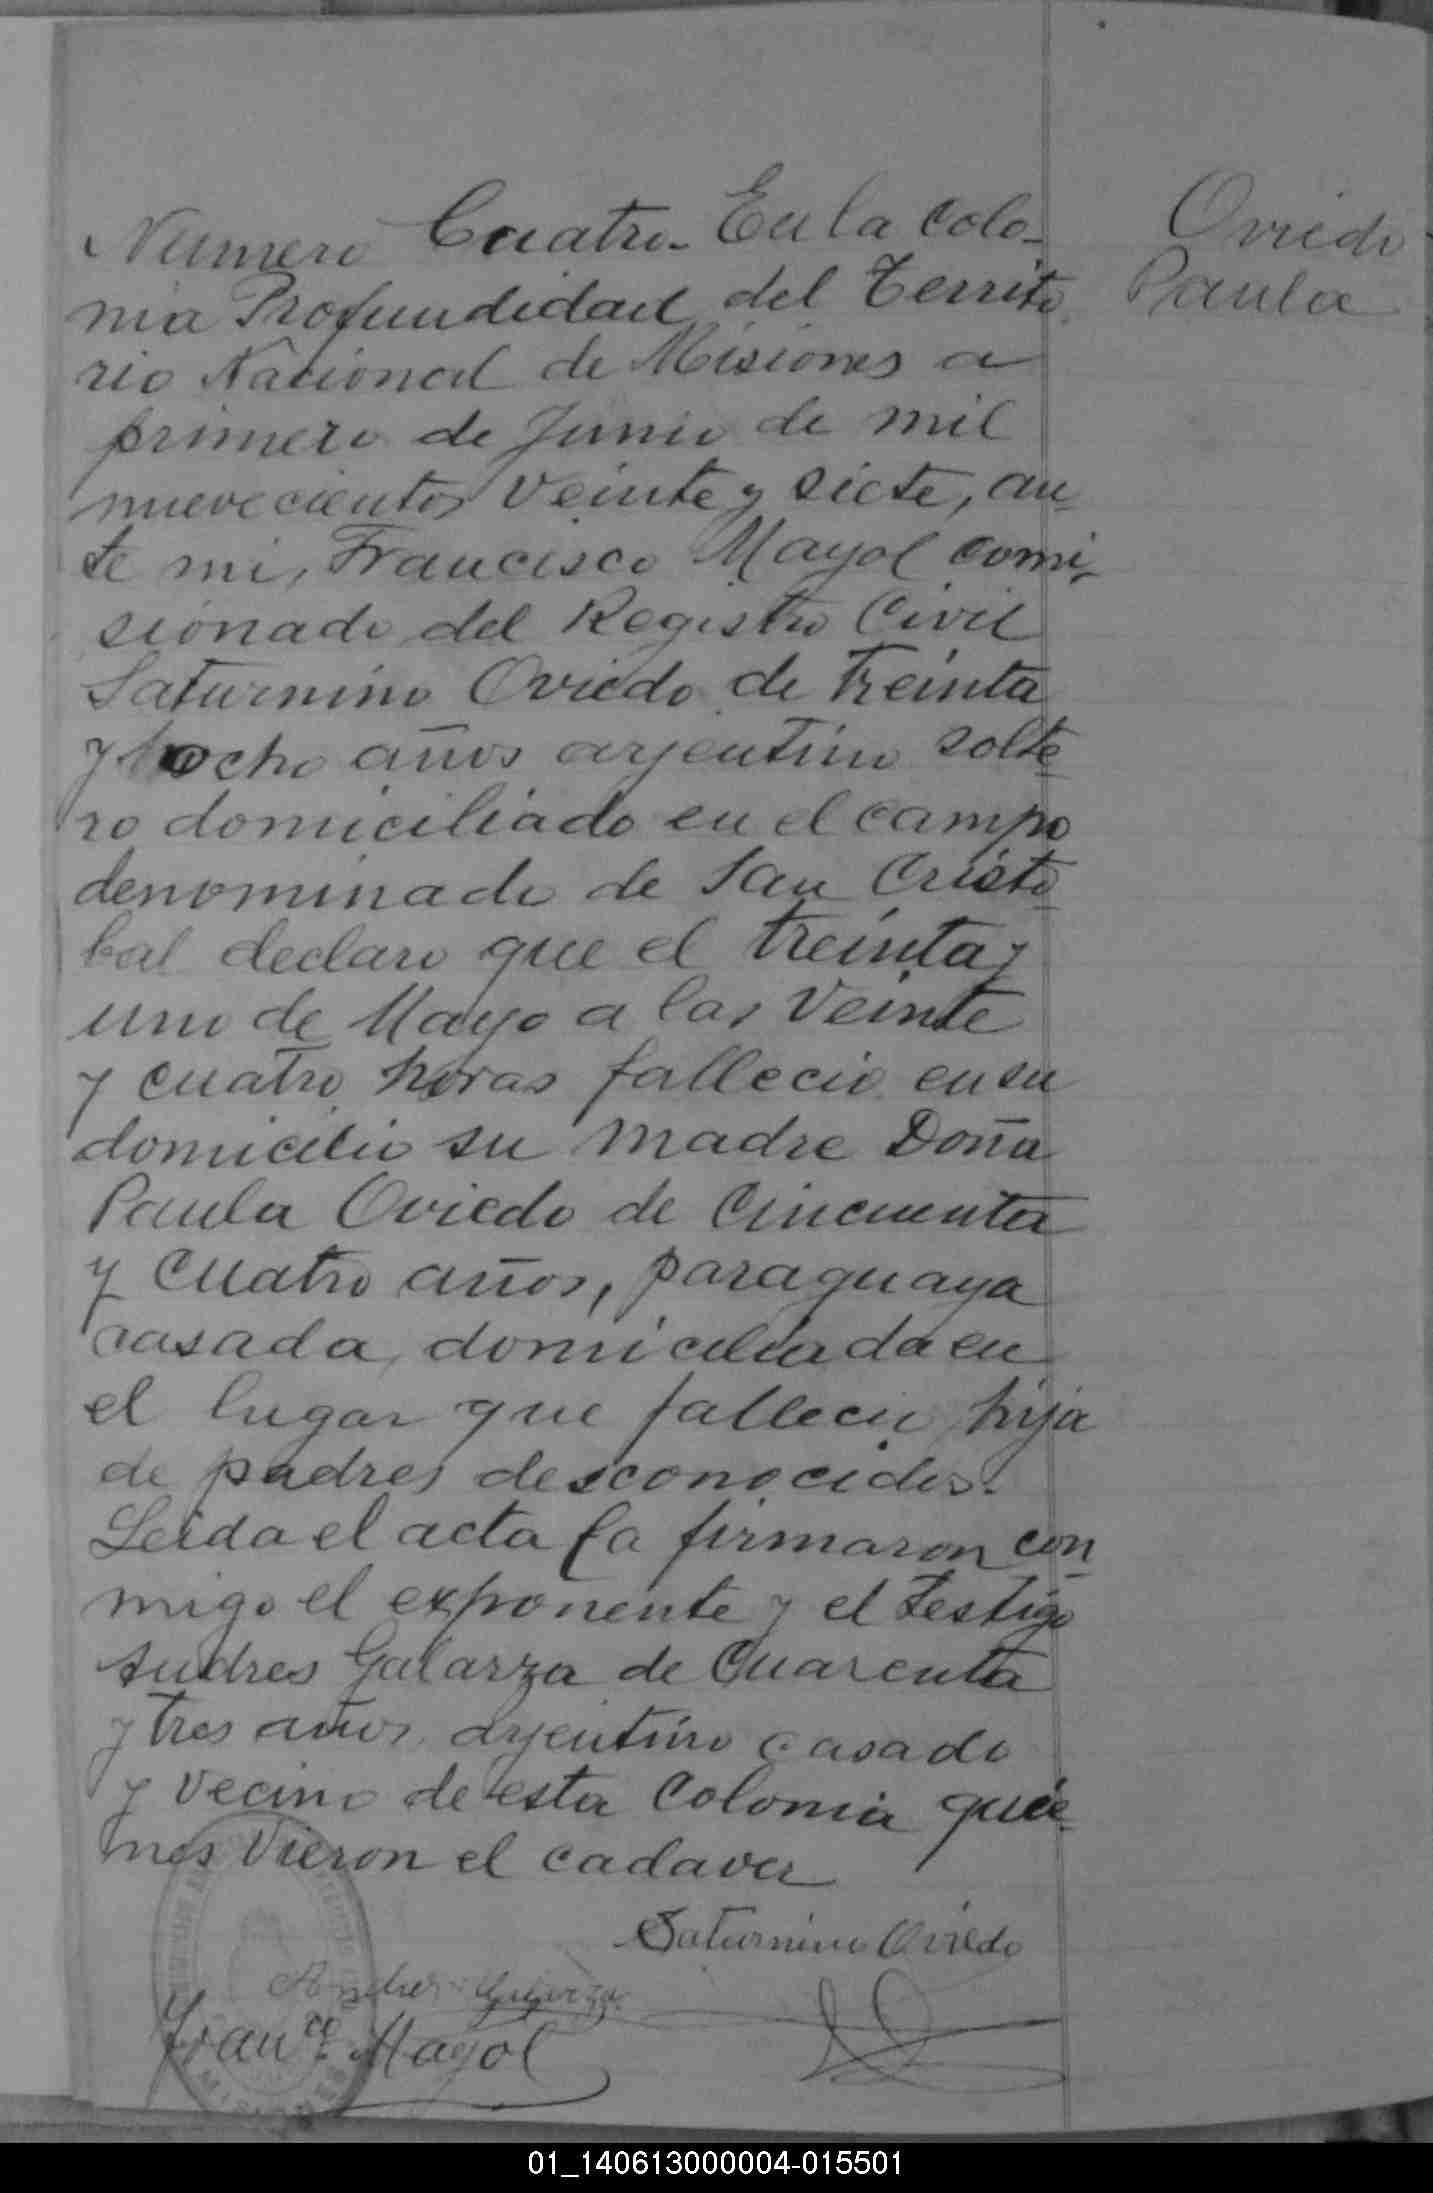 Numero Cuatro - En la colo-
nia Profundidad del Territo
rio Nacional de Misiones a
primero de Junio de mil
nuevecientos veinte y siete, an-
te mi, Francisco Mayol comi-
sionado del Registro Civil
Saturnino Oviedo de treinta
y ocho años arjentino solte-
ro domiciliado en el campo
denominado de San Cristo-
bal declaro que el treinta y
uno de Mayo a las veinte
y cuatro horas fallecio en su
domicilio su madre Doña
Paula Oviedo de cincuenta
y cuatro años, paraguaya
casada, domiciliada en
el lugar que fallecio, hija
de padres desconocidos.
Leida el acta la firmaron con-
migo el exponente y el testigo
Andres Galarza de cuarenta
y tres años, arjentino casado
y vecino de esta Colonia quie-
nes vieron el cadaver
Oviedo
Paula
Saturnino Oviedo
Andres Galarza
Franco Mayol
01_140613000004-015501